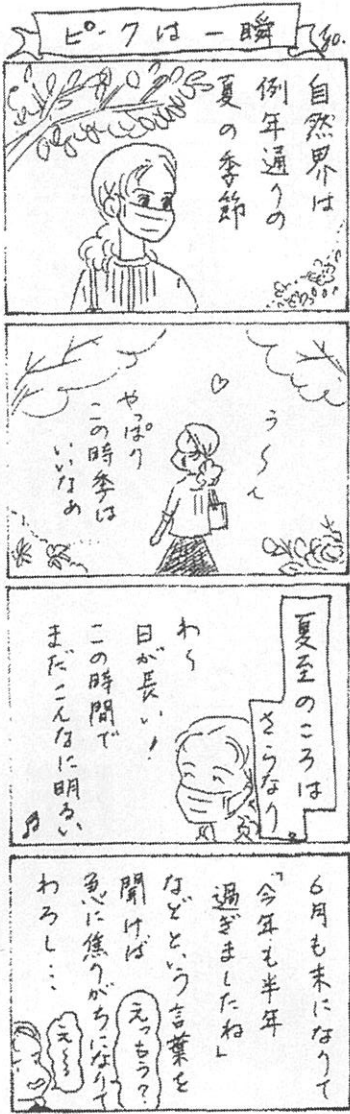 ピークは一瞬
自然界は
例年通りの
夏の季節
う〜ん
やっぱり
この時季は
いいなあ
夏至のころは
さらなり。
わ〜
日が長い!
この時間で
まだこんなに明るい
6月も末になりて
「今年も半年
過ぎましたね」
などという言葉を
聞けば
急に焦りがちになりて
わろし…
えっもう?
え〜〜